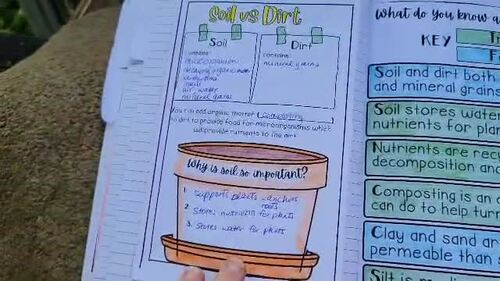 Soil vs Dirt
Soil
contains:
microorganism
decaying organic matter
earthworms
air, water
mineral grains
Dirt
contains:
mineral grains
You can add organic matter (composting)
to dirt to provide food for microorganisms which
will provide nutrients to the dirt.
Why is soil so important?
1. Supports plants - anchors
roots
2. Stores nutrients for plants
3. Stores water for plants
What do you know a
KEY
Soil and dirt both
and mineral grains
Soil stores water
nutrients for pla
Nutrients are re
decomposition an
Composting is an
can do to help tu
Clay and sand ar
permeable than